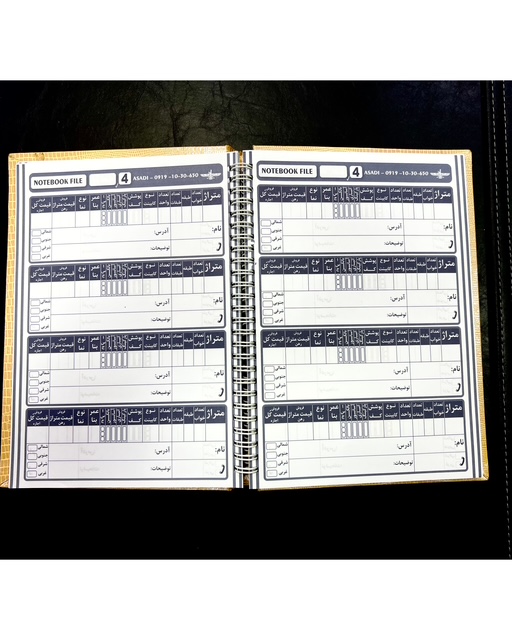 NOTEBOOK FILE 4 ASADI - 0919 -10-30-450
متراژ تعداد خواب طبقه تعداد طبقات تعداد واحد نوع کابینت پوشش کف عمر بنا نوع نما فروش قیمت متراژ رهن فروش قیمت کل اجاره
نام: آدرس: شمالی
جنوبی
توضیحات: شرقی
غربی
متراژ تعداد خواب طبقه تعداد طبقات تعداد واحد نوع کابینت پوشش کف عمر بنا نوع نما فروش قیمت متراژ رهن فروش قیمت کل اجاره
نام: آدرس: شمالی
جنوبی
توضیحات: شرقی
غربی
متراژ تعداد خواب طبقه تعداد طبقات تعداد واحد نوع کابینت پوشش کف عمر بنا نوع نما فروش قیمت متراژ رهن فروش قیمت کل اجاره
نام: آدرس: شمالی
جنوبی
توضیحات: شرقی
غربی
متراژ تعداد خواب طبقه تعداد طبقات تعداد واحد نوع کابینت پوشش کف عمر بنا نوع نما فروش قیمت متراژ رهن فروش قیمت کل اجاره
نام: آدرس: شمالی
جنوبی
توضیحات: شرقی
غربی
NOTEBOOK FILE 4 ASADI - 0919 -10-30-450
متراژ تعداد خواب طبقه تعداد طبقات تعداد واحد نوع کابینت پوشش کف عمر بنا نوع نما فروش قیمت متراژ رهن فروش قیمت کل اجاره
نام: آدرس: شمالی
جنوبی
توضیحات: شرقی
غربی
متراژ تعداد خواب طبقه تعداد طبقات تعداد واحد نوع کابینت پوشش کف عمر بنا نوع نما فروش قیمت متراژ رهن فروش قیمت کل اجاره
نام: آدرس: شمالی
جنوبی
توضیحات: شرقی
غربی
متراژ تعداد خواب طبقه تعداد طبقات تعداد واحد نوع کابینت پوشش کف عمر بنا نوع نما فروش قیمت متراژ رهن فروش قیمت کل اجاره
نام: آدرس: شمالی
جنوبی
توضیحات: شرقی
غربی
متراژ تعداد خواب طبقه تعداد طبقات تعداد واحد نوع کابینت پوشش کف عمر بنا نوع نما فروش قیمت متراژ رهن فروش قیمت کل اجاره
نام: آدرس: شمالی
جنوبی
توضیحات: شرقی
غربی